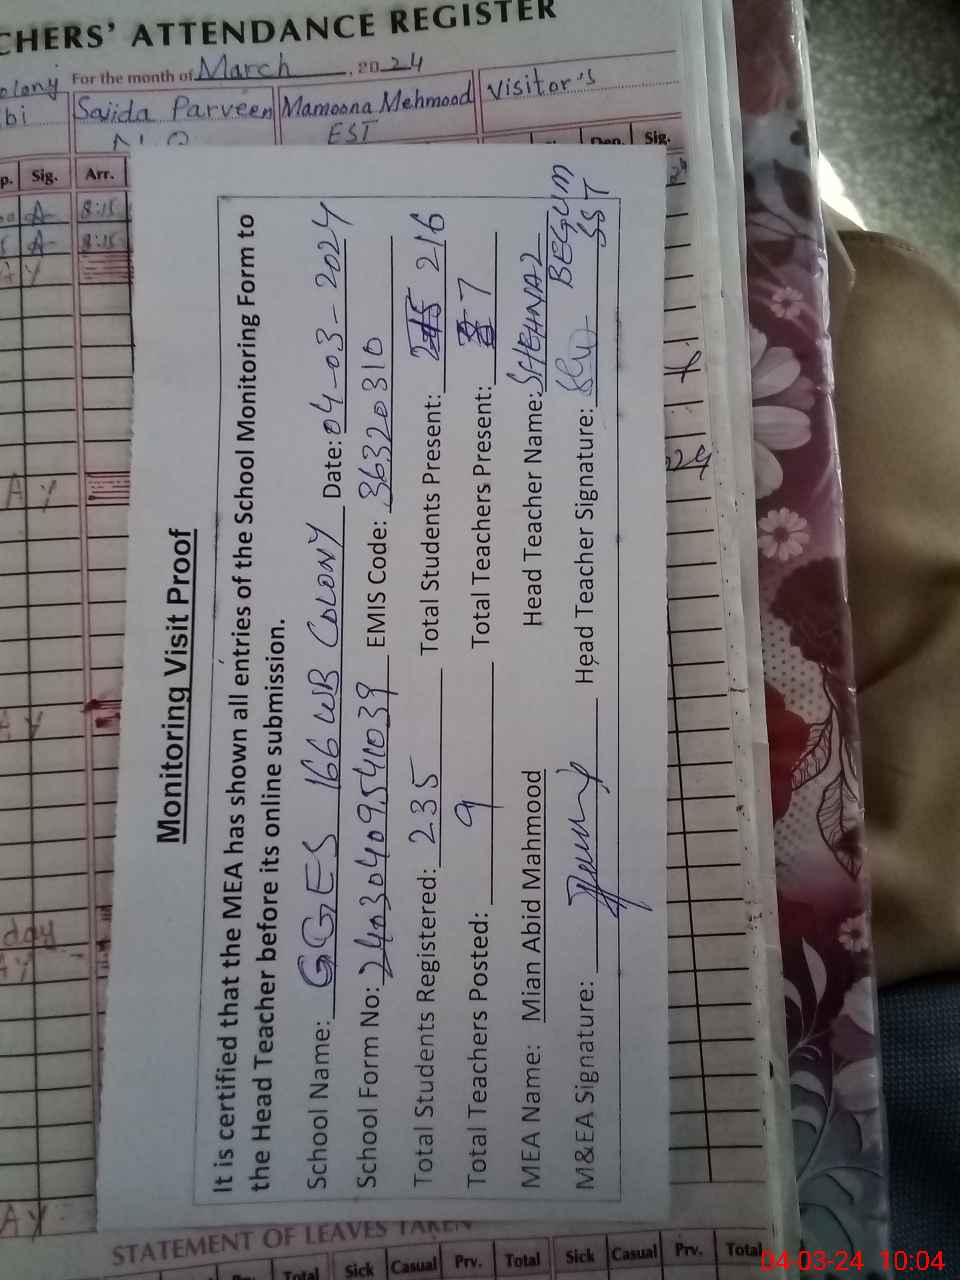 CHERS' ATTENDANCE REGISTER
olony For the month of March, 2024
bi Sajida Parveen Mamoona Mehmood Visitor's
EST
p. Sig. Arr. Dep. Sig.
A 8:15
A 8:15
A y
A y
A y
day
A y
A y
Monitoring Visit Proof
It is certified that the MEA has shown all entries of the School Monitoring Form to
the Head Teacher before its online submission.
School Name: GGES 166 WB COLONY Date: 04-03-2024
School Form No: 24030409541039 EMIS Code: 36320310
Total Students Registered: 235 Total Students Present: 216
Total Teachers Posted: 9 Total Teachers Present: 7
MEA Name: Mian Abid Mahmood Head Teacher Name: SHEHNAZ BEGUM
SST
M&EA Signature: Head Teacher Signature:
STATEMENT OF LEAVES TAKEN
Prv. Total Sick Casual Prv. Total Sick Casual Prv. Total
04-03-24 10:04